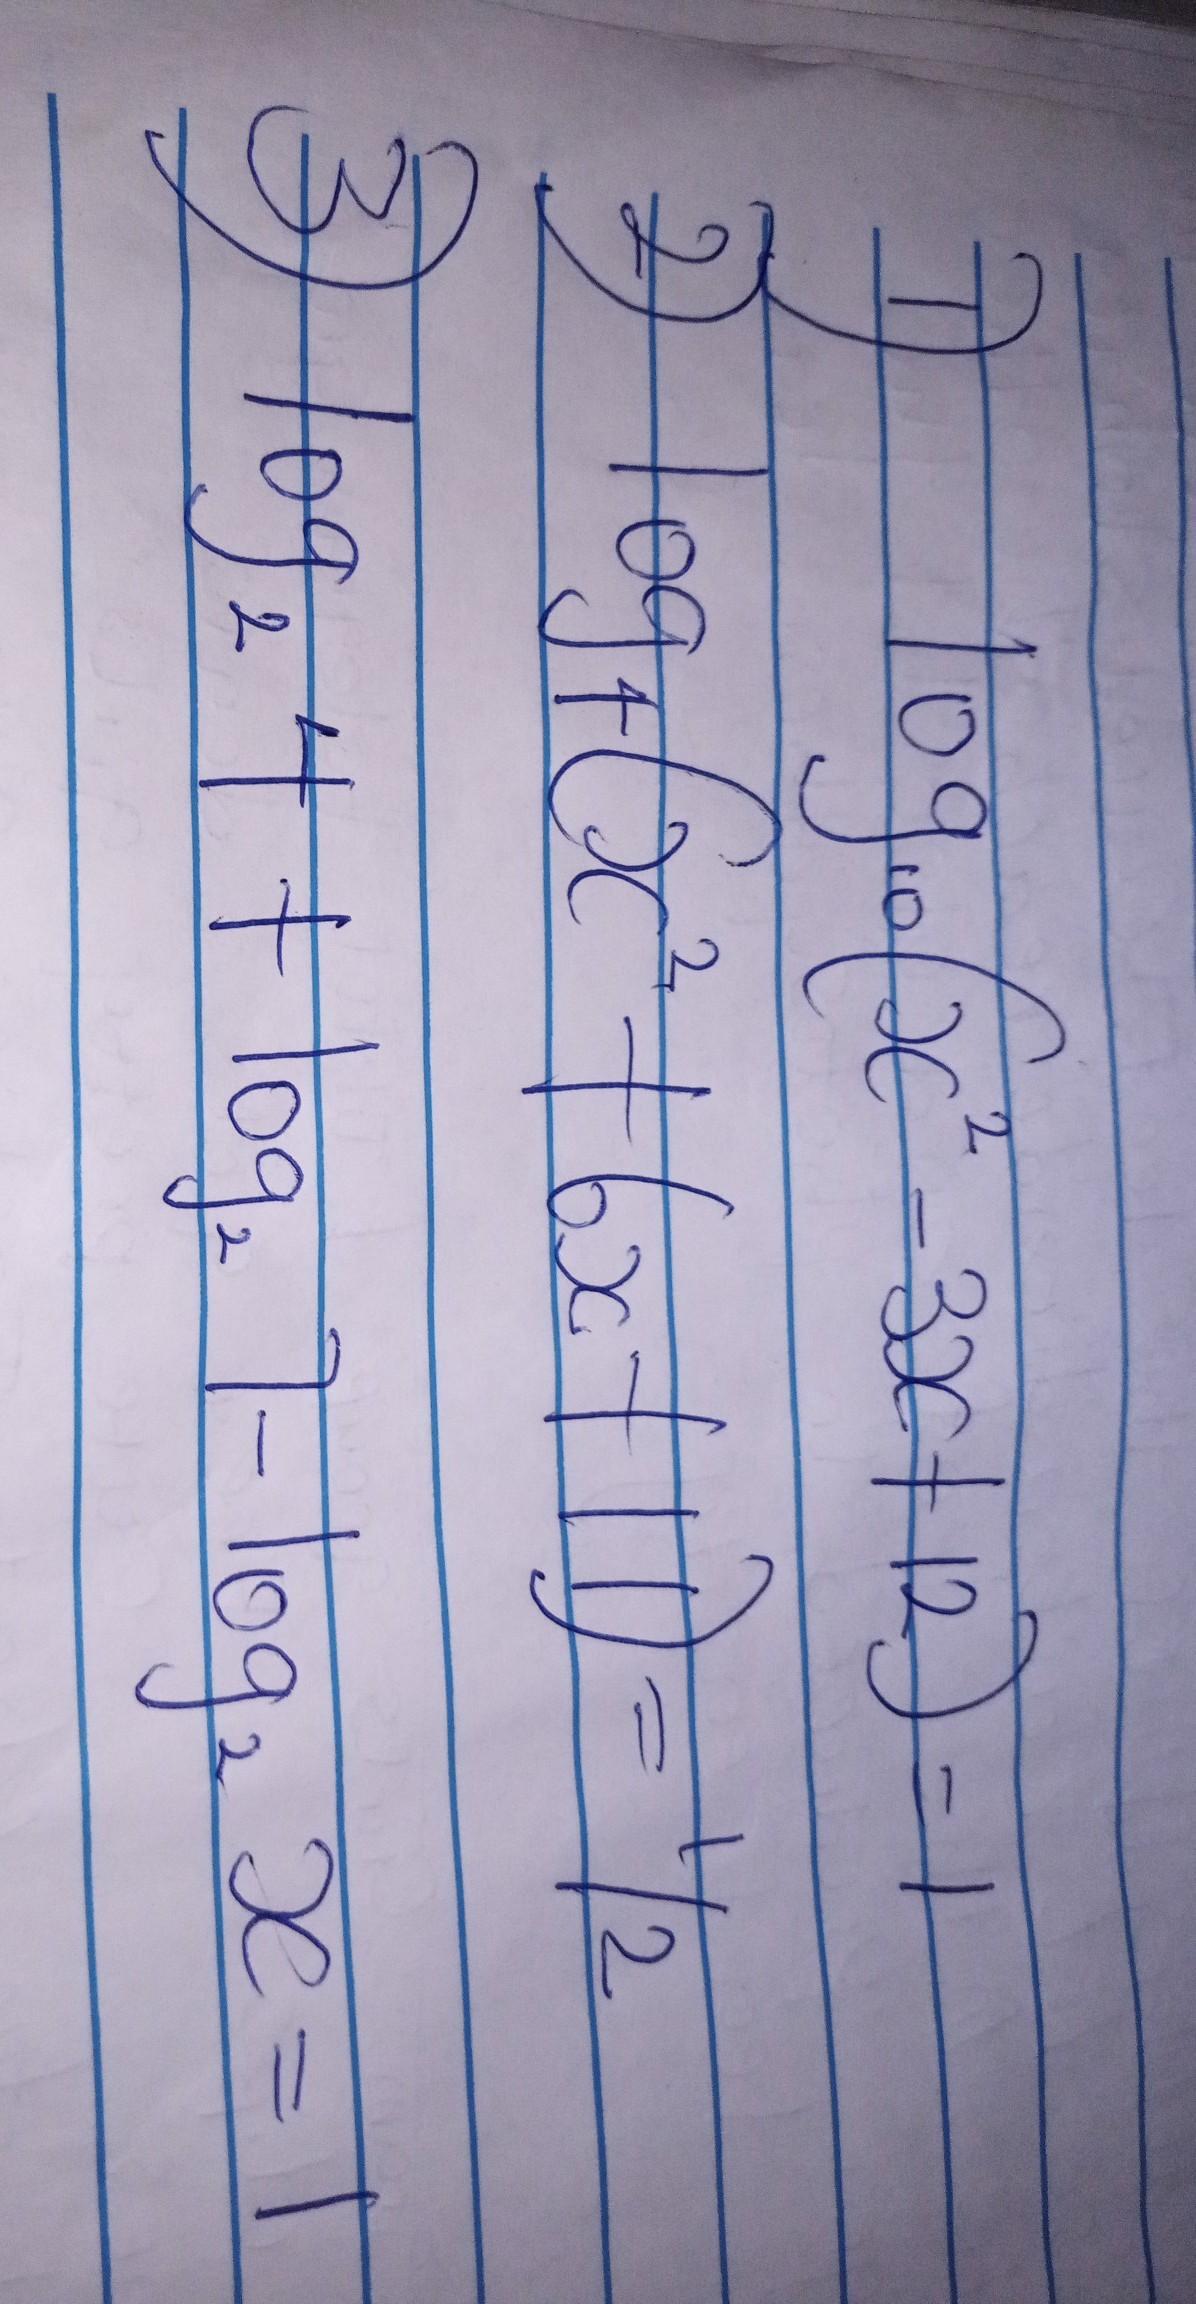 1) log₁₀(x² - 3x + 12) = 1
2) log₄(x² + 6x + 11) = 1/2
3) log₂ 4 + log₂ 7 - log₂ x = 1